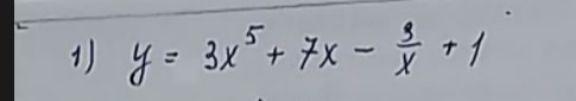 1) y = 3x⁵ + 7x - 3/x + 1